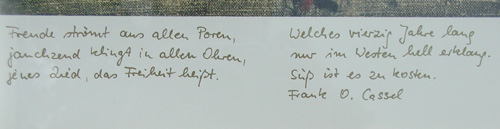 Freude strömt aus allen Poren,
jauchzend klingt in allen Ohren,
jenes Lied, das Freiheit heißt.
Welches vierzig Jahre lang
nur im Westen hell erklang.
Süß ist es zu kosten.
Frank D. Cassel